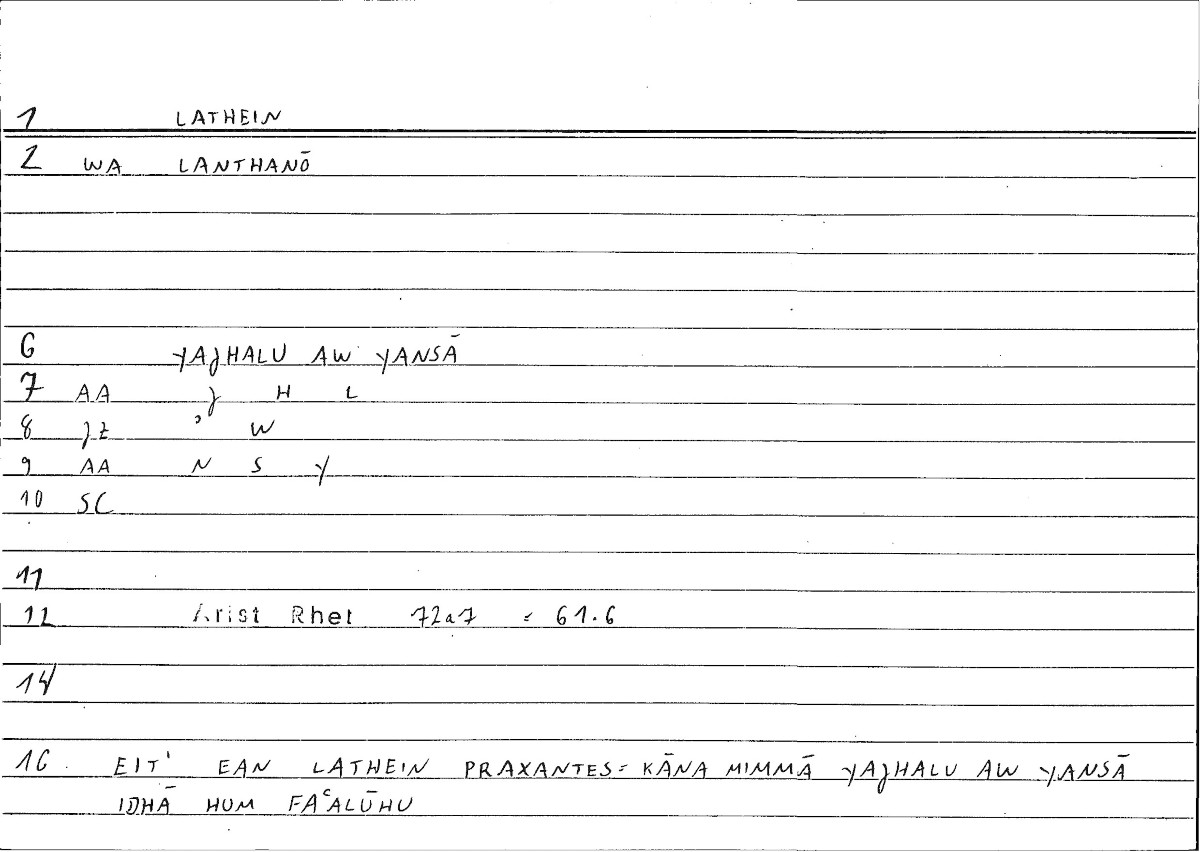 1 LATHEIN
2 WA LANTHANŌ
6 YAJHALU AW YANSĀ
7 AA J H L
8 JZ ʾ W
9 AA N S Y
10 SC
11
12 Arist Rhet 72a7 = 61.6
14
16 EIT' EAN LATHEIN PRAXANTES = KĀNA MIMMĀ YAJHALU AW YANSĀ
IDHĀ HUM FAʿALŪHU